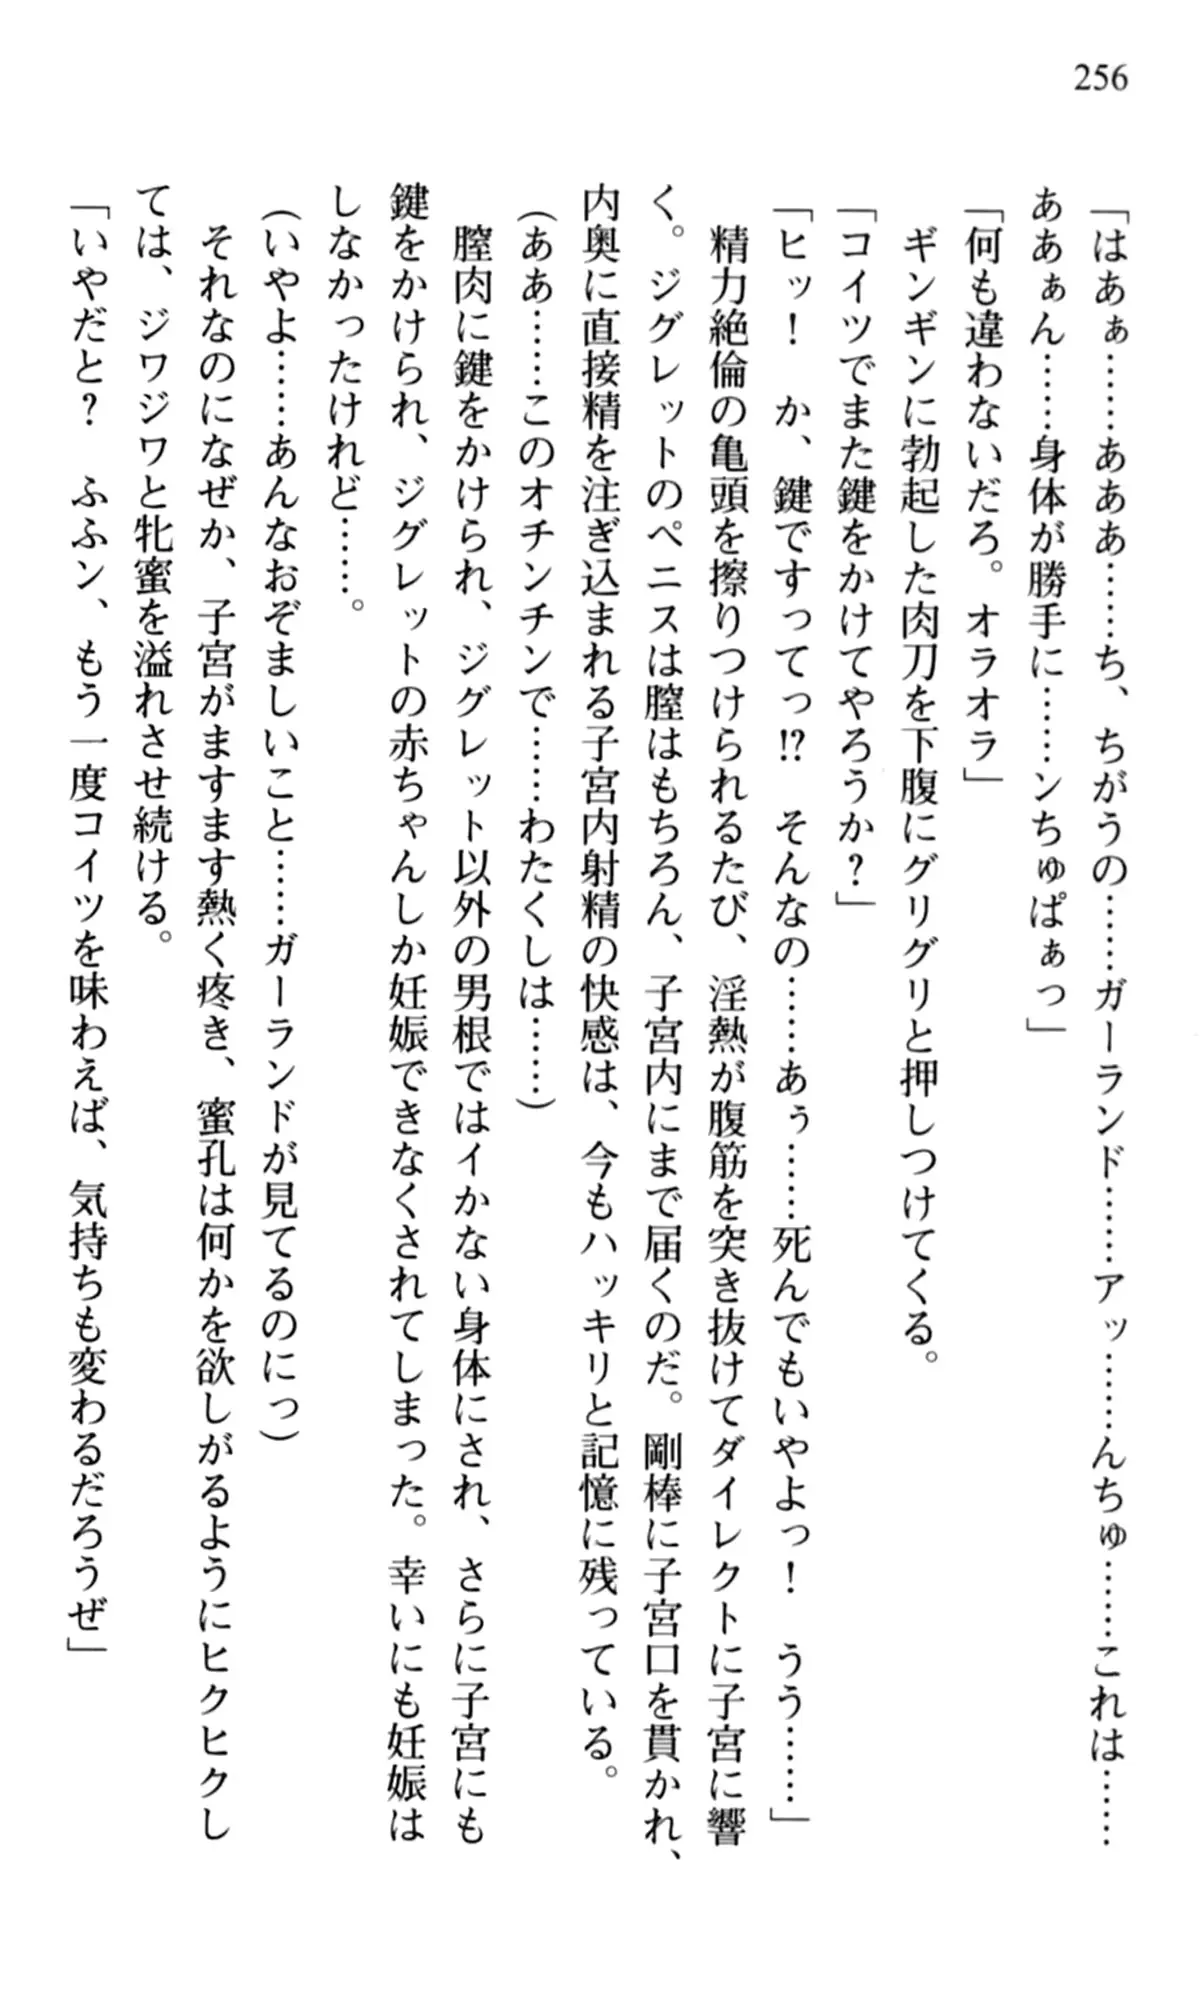 256
「はあぁ……あああ……ち、ちがうの……ガーランド……アッ……んちゅ……これは……
ああぁん……身体が勝手に……ンちゅぱぁっ」
「何も違わないだろ。オラオラ」
ギンギンに勃起した肉刀を下腹にグリグリと押しつけてくる。
「コイツでまた鍵をかけてやろうか？」
「ヒッ！　か、鍵ですってっ!?　そんなの……あぅ……死んでもいやよっ！　うう……」
精力絶倫の亀頭を擦りつけられるたび、淫熱が腹筋を突き抜けてダイレクトに子宮に響
く。ジグレットのペニスは膣はもちろん、子宮内にまで届くのだ。剛棒に子宮口を貫かれ、
内奥に直接精を注ぎ込まれる子宮内射精の快感は、今もハッキリと記憶に残っている。
（ああ……このオチンチンで……わたくしは……）
膣肉に鍵をかけられ、ジグレット以外の男根ではイかない身体にされ、さらに子宮にも
鍵をかけられ、ジグレットの赤ちゃんしか妊娠できなくされてしまった。幸いにも妊娠は
しなかったけれど……。
（いやよ……あんなおぞましいこと……ガーランドが見てるのにっ）
それなのになぜか、子宮がますます熱く疼き、蜜孔は何かを欲しがるようにヒクヒクし
ては、ジワジワと牝蜜を溢れさせ続ける。
「いやだと？　ふふン、もう一度コイツを味わえば、気持ちも変わるだろうぜ」